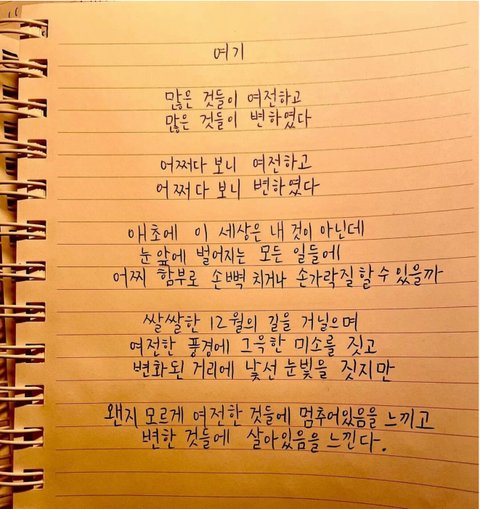 여기
많은 것들이 여전하고
많은 것들이 변하였다
어쩌다 보니 여전하고
어쩌다 보니 변하였다
애초에 이 세상은 내 것이 아닌데
눈 앞에 벌어지는 모든 일들에
어찌 함부로 손뼉 치거나 손가락질 할 수 있을까
쌀쌀한 12월의 길을 거닐으며
여전한 풍경에 그윽한 미소를 짓고
변화된 거리에 낯선 눈빛을 짓지만
왠지 모르게 여전한 것들에 멈추어있음을 느끼고
변한 것들에 살아있음을 느낀다.